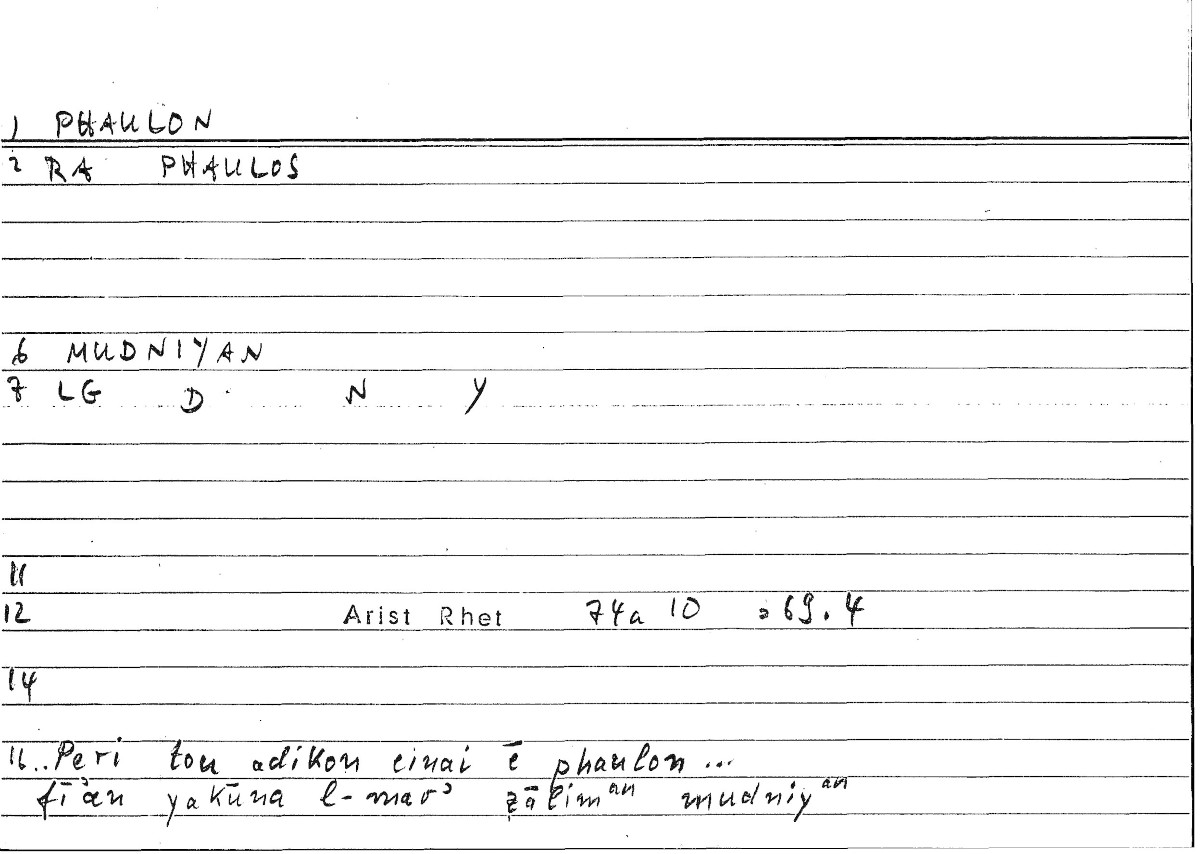 1 PHAULON
2 RA PHAULOS
6 MUDNIYAN
7 LG D N Y
11
12 Arist Rhet 74a 10 = 69.4
14
16 ..Peri tou adikon einai ē phaulon...
fī ʾan yakūna l-marʾ ẓālimᵃⁿ mudniyᵃⁿ